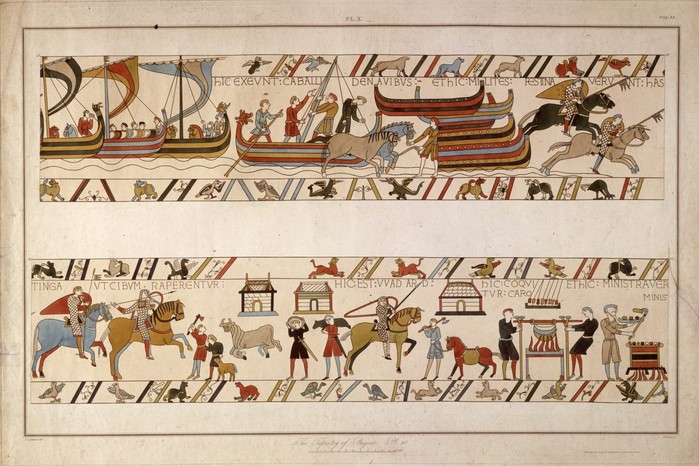 PL. X.
HIC EXEVNT: CABALLI DE NAVIBUS:- ET HIC: MILITES: FESTINAVERVNT: HAS
TINGA VT CIBVM. RAPERENTVR:
HIC EST: VVADARD:
HIC: COQV
TVR: CARO
ET HIC: MINISTRAVER
MINIS
The Tapestry of Bayeux